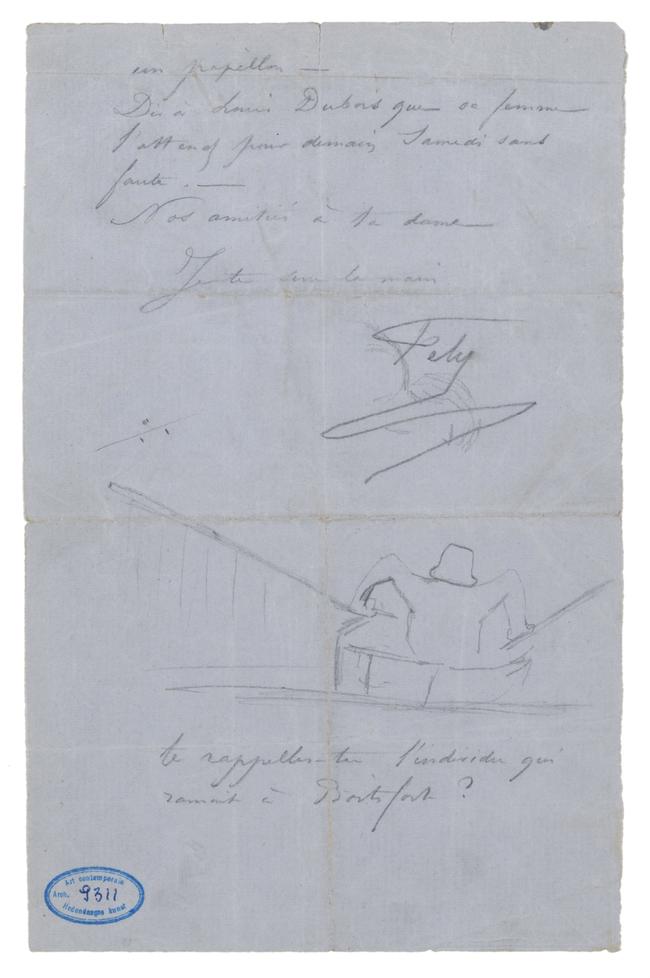 un papillon —
Dis à Louis Dubois que sa femme
l'attend pour demain Samedi sans
faute. —
Nos amitiés à ta dame
Je te serre la main
Fely
te rappelles-tu l'individu qui
ramait à Boitsfort ?
Art contemporain
Arch. 9311
Hedendaagse kunst